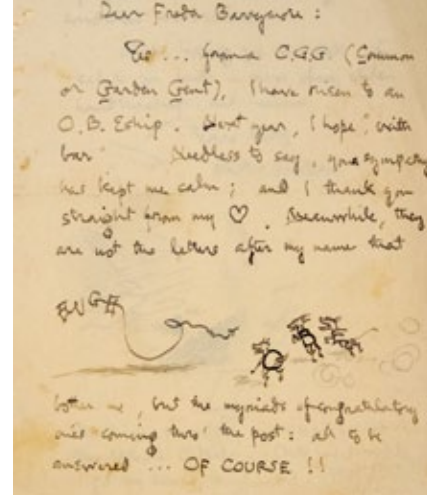 Dear Freda Bruce :
Yes ... from a C.G.G. (Common
or Garden Gent), I have risen to an
O.B. Eship. Next year, I hope, "with
bar" Needless to say, your sympathy
has kept me calm ; and I thank you
straight from my ♡. Meanwhile, they
are not the letters after my name that
bother me, but the myriads of congratulatory
ones coming thro' the post : all to be
answered ... OF COURSE !!